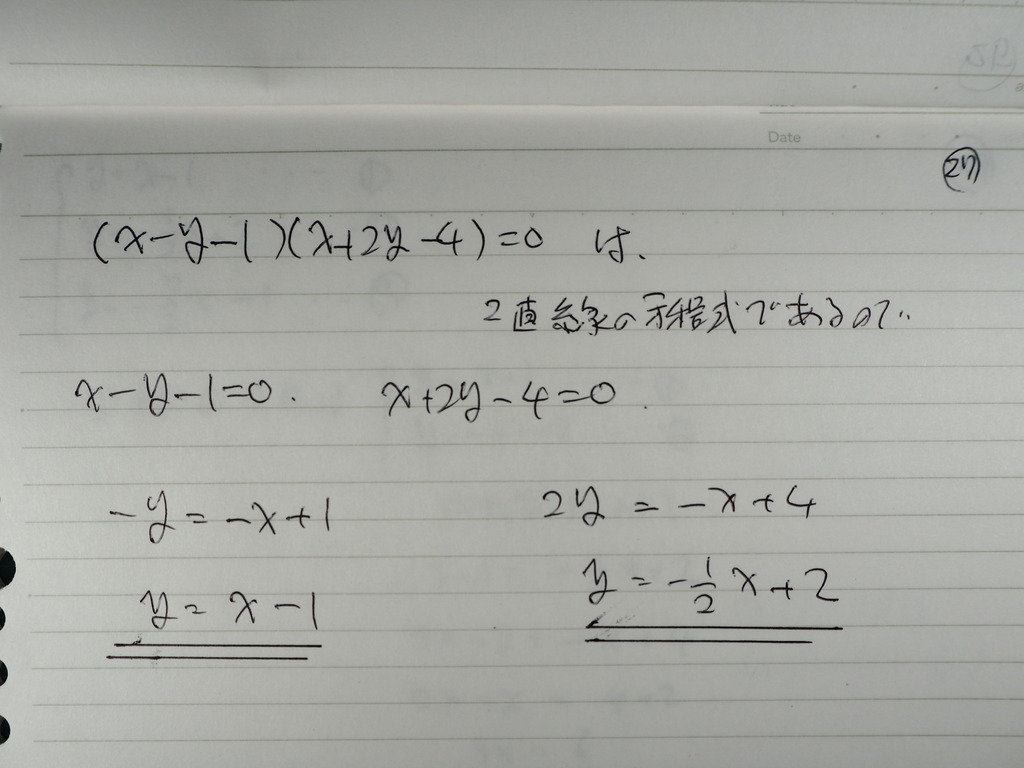 Date
㉗
(x-y-1)(x+2y-4)=0 は、
2直線の方程式であるので..
x-y-1=0. x+2y-4=0.
-y=-x+1 2y=-x+4
y=x-1 y=-1/2x+2